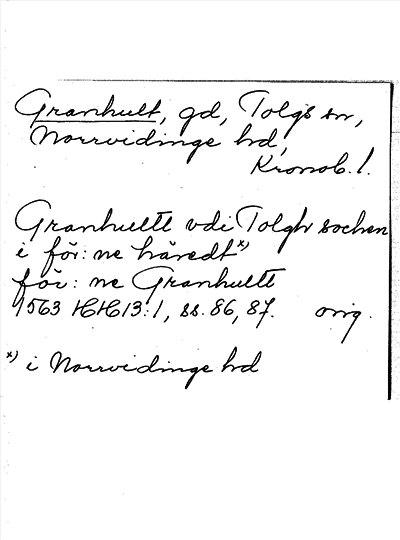 Granhult, gd, Tolgs sn,
Norrvidinge hd,
Kronob. l.
Granhultt vdi Tolgh sochen
i för: ne häredt x)
för: ne Granhultt
1563 HH 13:1, ss. 86, 87. orig.
x) i Norrvidinge hd